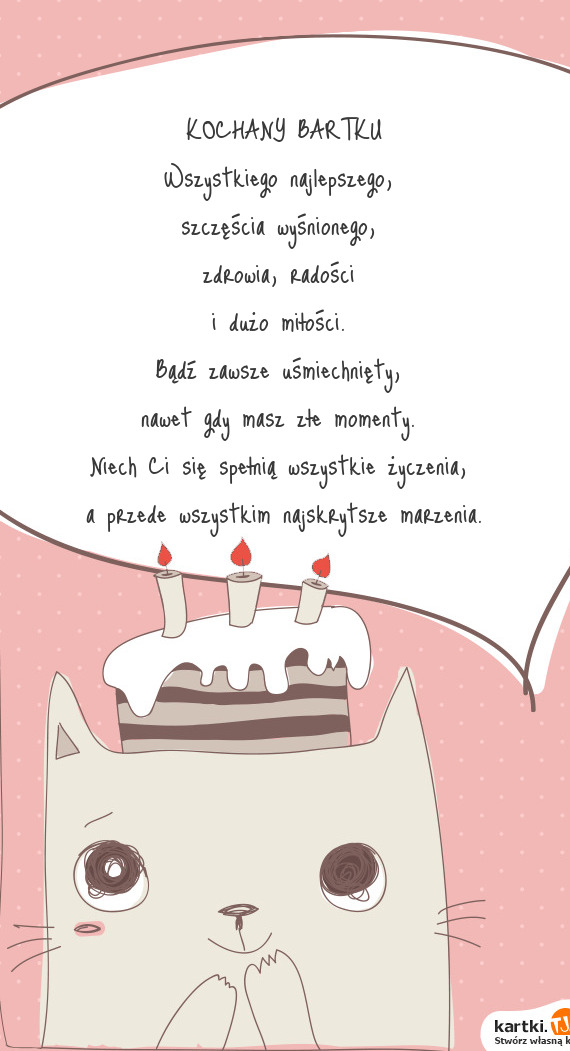 KOCHANY BARTKU
Wszystkiego najlepszego,
szczęścia wyśnionego,
zdrowia, radości
i dużo miłości.
Bądź zawsze uśmiechnięty,
nawet gdy masz złe momenty.
Niech Ci się spełnią wszystkie życzenia,
a przede wszystkim najskrytsze marzenia.
kartki.TJ
Stwórz własną k